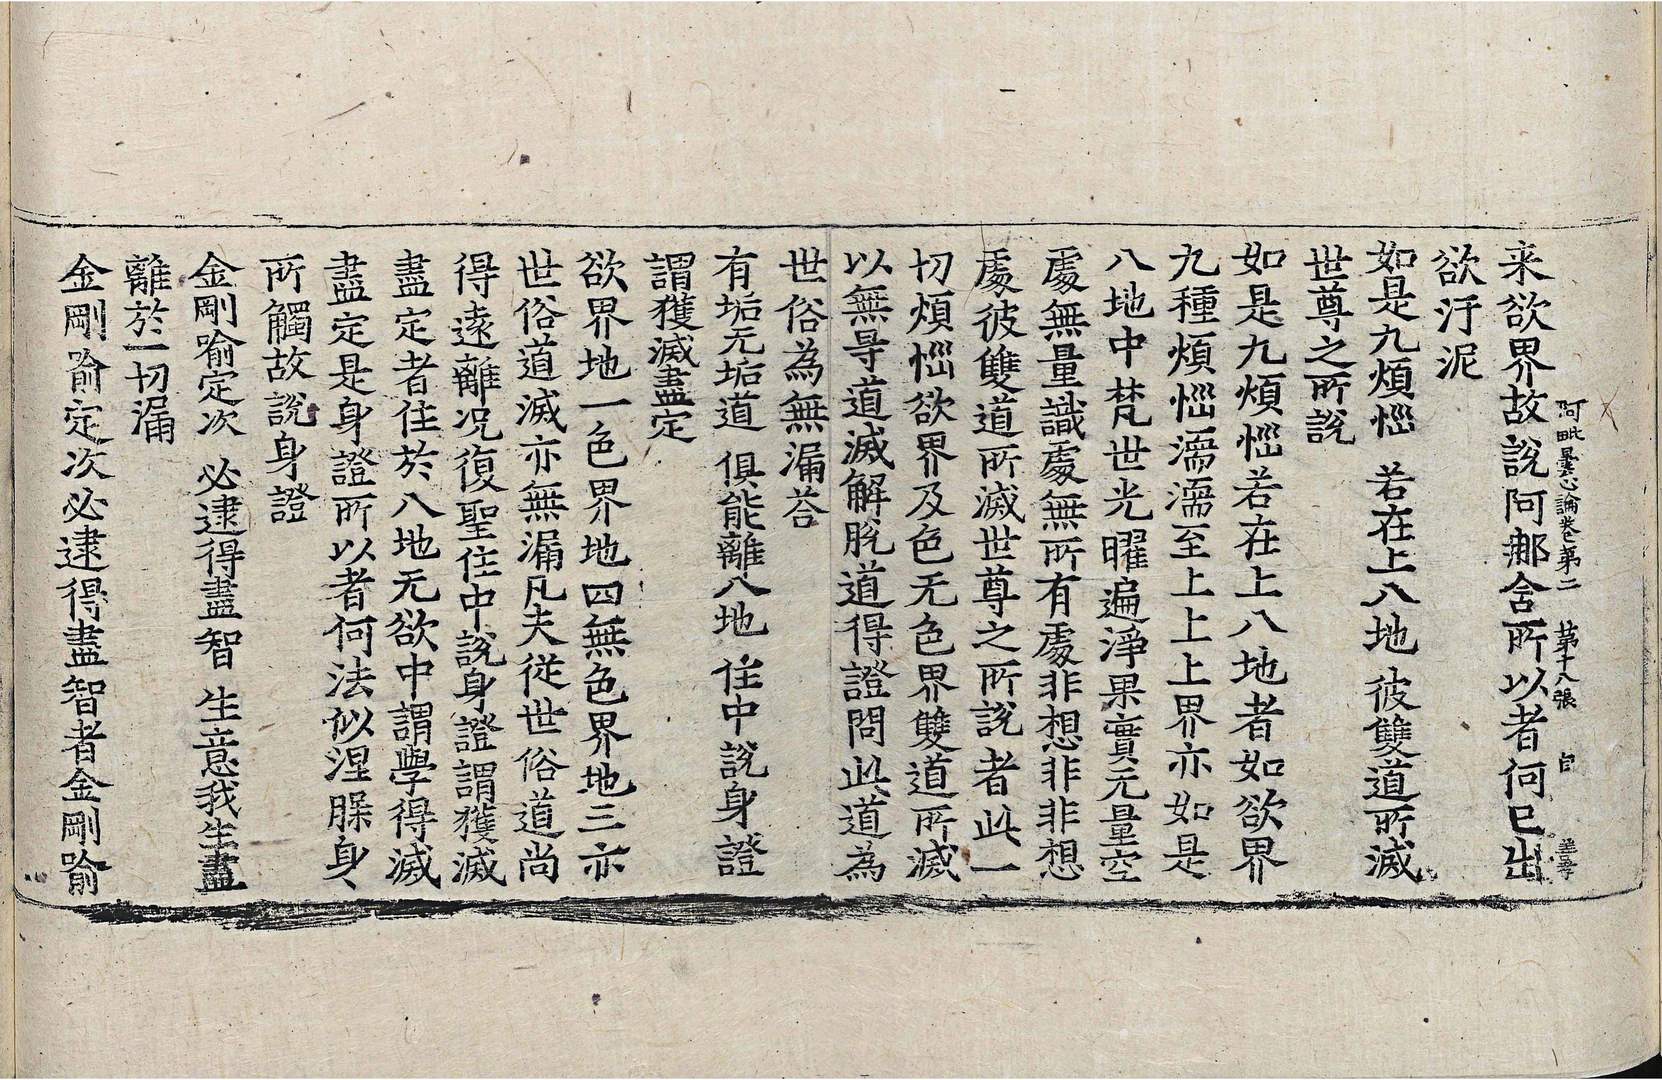 阿毗曇心論卷第二　第十八張　自
来欲界故說阿那含所以者何已出
欲汙泥
如是九煩惱　若在上八地　彼雙道所滅
世尊之所說
如是九煩惱若在上八地者如欲界
九種煩惱濡濡至上上上界亦如是
八地中梵世光曜遍淨果實无量空
處無量識處無所有處非想非非想
處彼雙道所滅世尊之所說者此一
切煩惱欲界及色无色界雙道所滅
以無导道滅解脫道得證問此道為
世俗為無漏荅
有垢无垢道　俱能離八地　住中說身證
謂獲滅盡定
欲界地一色界地四無色界地三亦
世俗道滅亦無漏凡夫從世俗道尚
得遠離况復聖住中說身證謂獲滅
盡定者住於八地无欲中謂學得滅
盡定是身證所以者何法似涅槃身
所觸故說身證
金剛喻定次　必逮得盡智　生意我生盡
離於一切漏
金剛喻定次必逮得盡智者金剛喻